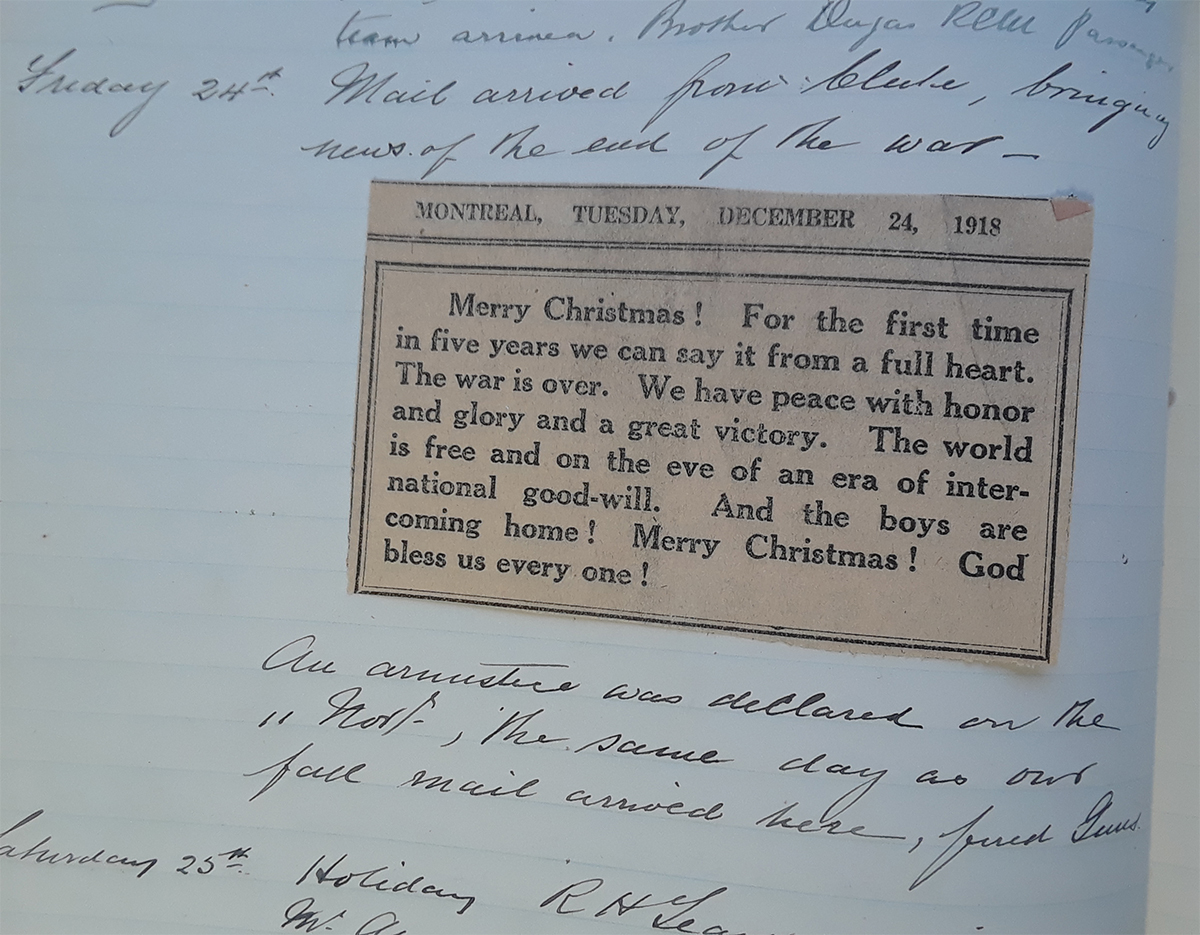 team arrived, Brother Dugas RCM Passenger
Friday 24th. Mail arrived from Clute, bringing
news of the end of the war —
MONTREAL, TUESDAY, DECEMBER 24, 1918
Merry Christmas! For the first time
in five years we can say it from a full heart.
The war is over. We have peace with honor
and glory and a great victory. The world
is free and on the eve of an era of inter-
national good-will. And the boys are
coming home! Merry Christmas! God
bless us every one!
An armistice was declared on the
11 Nov, the same day as our
fall mail arrived here, fired Guns.
Saturday 25th. Holiday R H
Mr.